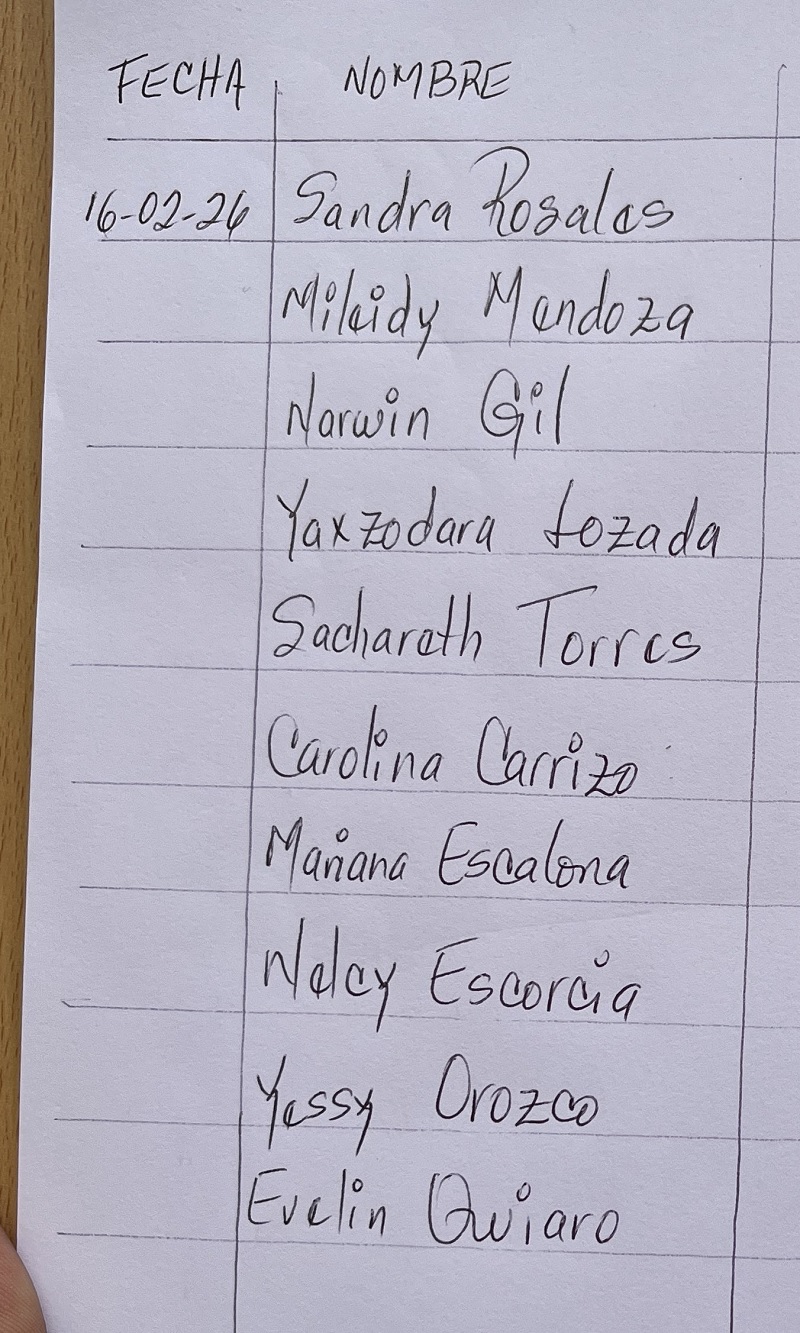 FECHA NOMBRE
16-02-26 Sandra Rosales
Mileidy Mendoza
Norwin Gil
Yaxzodara Lozada
Sachareth Torres
Carolina Carrizo
Mariana Escalona
Nelcy Escorcia
Yessy Orozco
Evelin Quiaro